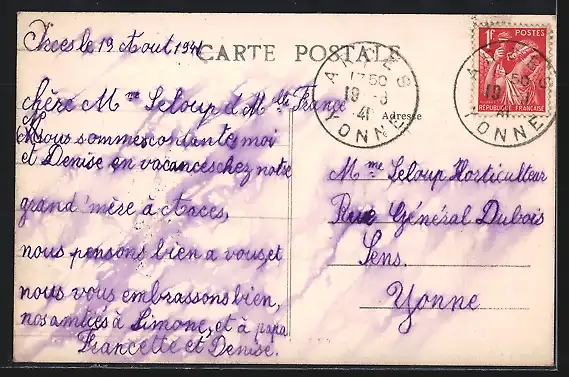 le 19 Août 1941
CARTE POSTALE
1F POSTES
RÉPUBLIQUE FRANÇAISE
17 50
19 -8
41
YONNE
YONNE
Adresse
chère Mme Seloup et Mlle France
Nous sommes contantes moi
et Denise en vacances chez notre
grand'mère à
nous pensons bien a vous, et
nous vous embrassons bien,
nos amitiés à Simone, et à papa
Francette et Denise.
Mme Seloup Horticulteur
Rue Général Dubois
Sens.
Yonne